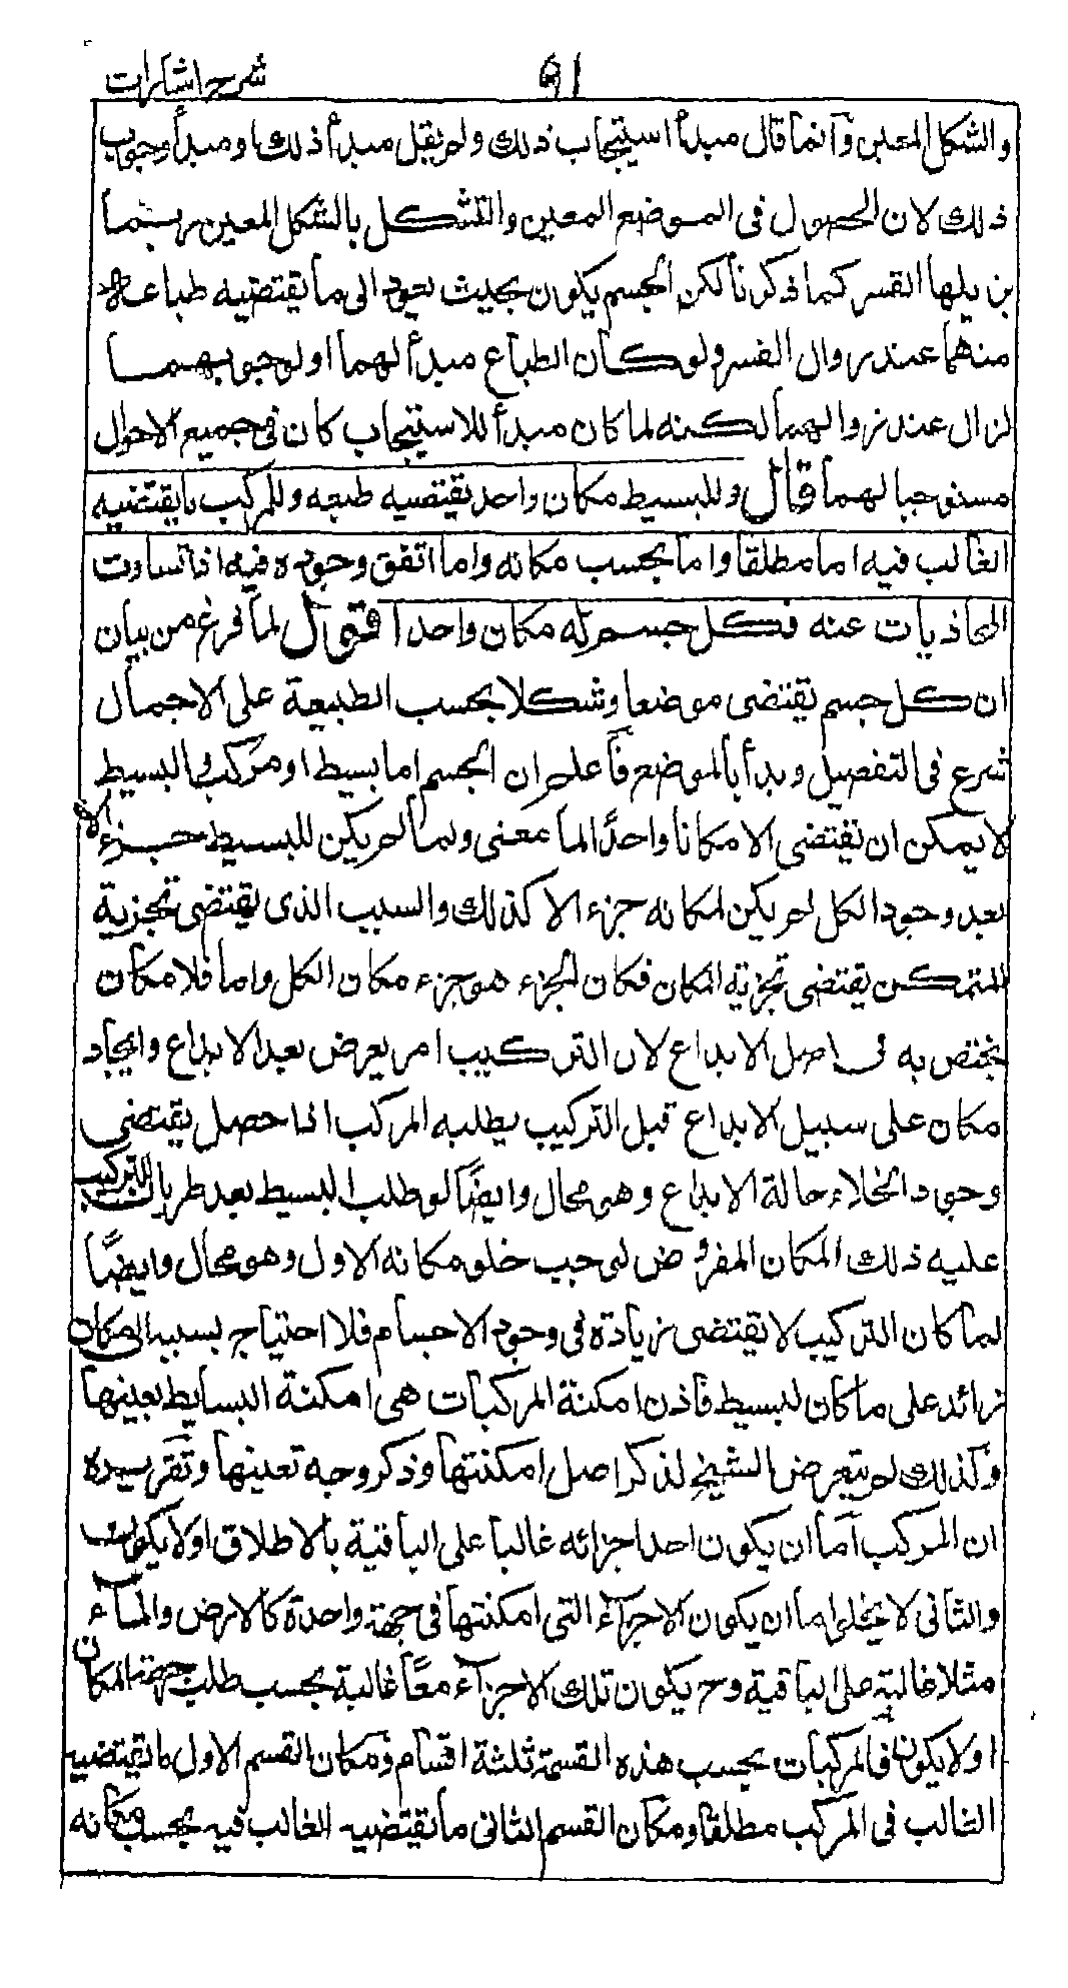 شرح اشارات
٩١
والشكل المعين وانما قال مبدأ استيجاب ذلك ولم يقل مبدأ ذلك او مبدأ وجوب
ذلك لان الحصول فى الموضع المعين والتشكل بالشكل المعين ربما
يزيلها القسر كما ذكرنا لكن الجسم يكون بحيث يعود الى ما يقتضيه طباعه
منهما عند زوال القسر ولو كان الطباع مبدأ لهما او لوجوبهما
لزال عند زوالهما لكنه لما كان مبدأ للاستيجاب كان فى جميع الاحوال
مستوجبا لهما قال وللبسيط مكان واحد يقتضيه طبعه وللمركب ما يقتضيه
الغالب فيه اما مطلقا واما بحسب مكانه واما اتفق وجوده فيه اذا تساوت
المحاذيات عنه فكل جسم له مكان واحد اقول لما فرغ من بيان
ان كل جسم يقتضى موضعا وشكلا بحسب الطبيعة على الاجمال
شرع فى التفصيل وبدأ بالموضع فاعلم ان الجسم اما بسيط او مركب والبسيط
لا يمكن ان يقتضى الا مكانا واحدا لما معنى ولما لم يكن للبسيط جزء الا
بعد وجود الكل لم يكن لمكانه جزء الا كذلك والسبب الذى يقتضى تجزية
المتمكن يقتضى تجزية المكان فكان الجزء هو جزء مكان الكل واما فلا مكان
يختص به فى اصل الابداع لان التركيب امر يعرض بعد الابداع وايجاد
مكان على سبيل الابداع قبل التركيب يطلبه المركب اذا حصل يقتضى
وجود الخلاء حالة الابداع وهو محال وايضا لو طلب البسيط بعد طريان التركيب
عليه ذلك المكان المفروض لوجب خلو مكانه الاول وهو محال وايضا
لما كان التركيب لا يقتضى زيادة فى وجود الاجسام فلا احتياج بسببه الى مكان
زائد على ما كان للبسيط فاذن امكنة المركبات هى امكنة البسايط بعينها
وكذلك لم يتعرض الشيخ لذكر اصل امكنتها وذكر وجه تعينها وتقريره
ان المركب اما ان يكون احد اجزائه غالبا على الباقية بالاطلاق او لا يكون
والثانى لا يخلو اما ان يكون الاجزاء التى امكنتها فى جهة واحدة كالارض والماء
مثلا غالبة على الباقية وح يكون تلك الاجزاء معا غالبة بحسب طلب جهة المكان
او لا يكون فالمركبات بحسب هذه القسمة ثلثة اقسام ومكان القسم الاول ما يقتضيه
الغالب فى المركب مطلقا ومكان القسم الثانى ما يقتضيه الغالب فيه بحسب مكانه